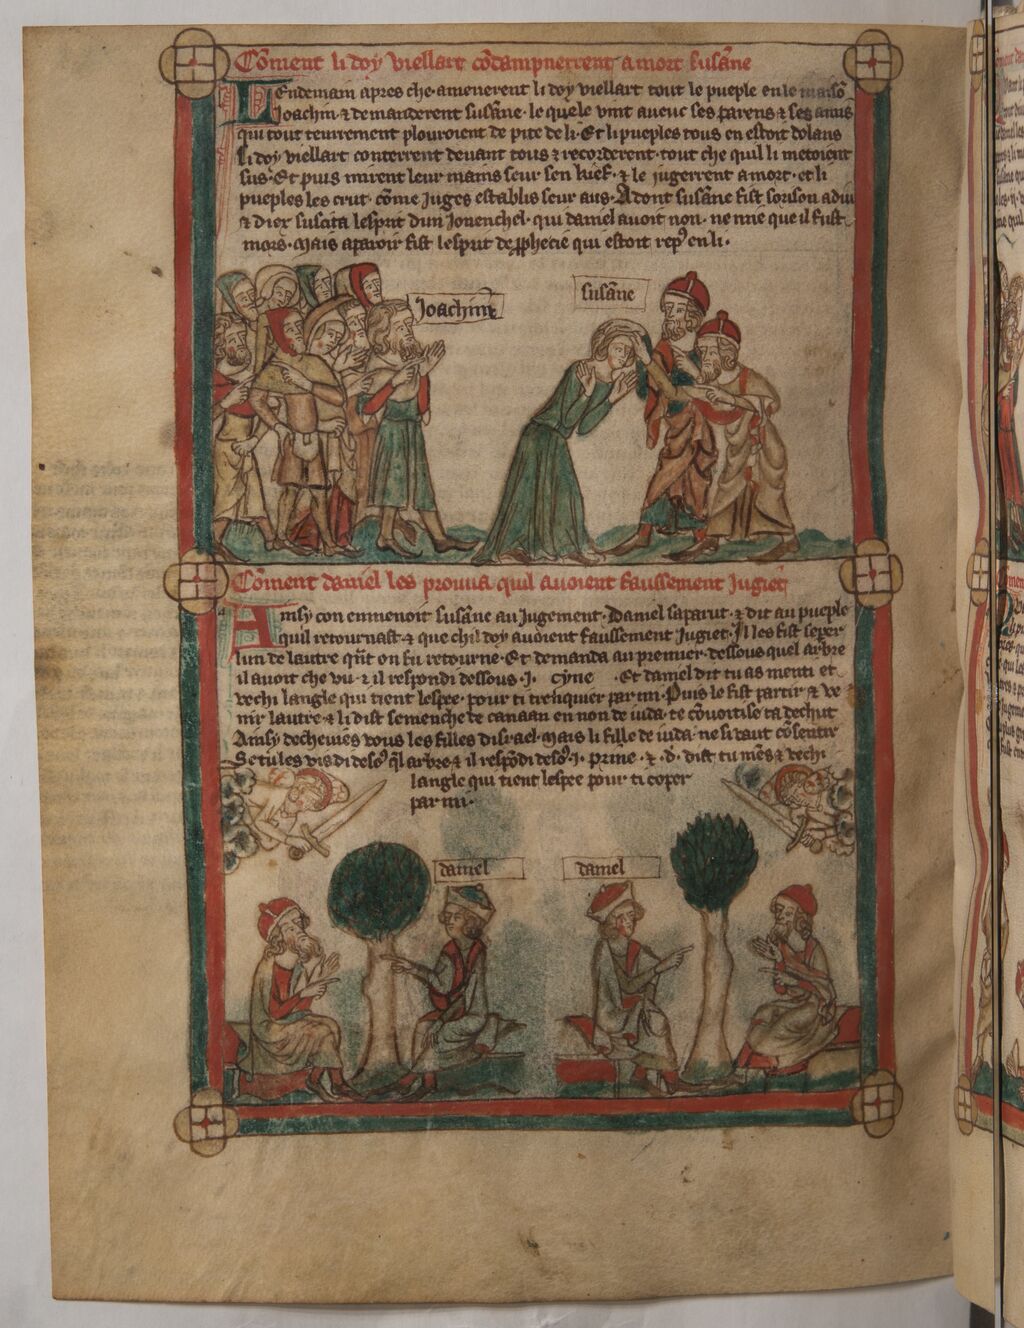 Cōment li doy viellart cōdampnerrent a mort susāne
LEndemain apres che amenerent li doy viellart tout le pueple en le maisō
Joachim ⁊ demanderent susāne · le quele vint aueuc ses parens ⁊ ses amis
qui tout tenrement plouroient de pite de li · Et li pueples tous en estoit dolans
Li doy viellart conterrent deuant tous ⁊ recorderent · tout che quil li metoient
sus · Et puis mirent leur mains seur sen kief · ⁊ le jugerrent a mort · et li
pueples les crut · cōme juges establis seur aus · Adont susāne fist sorison a diu
⁊ diex suscita lesprit dun jouenchel · qui daniel auoit non · ne mie que il fust
mors · mais aparoir fist lesprit de ꝓphecie qui estoit rep' en li ·
Joachim
susāne
Cōment daniel les prouua quil auoient faussement jugiet
Ainsy con enmenoit susāne au jugement · Daniel saparut · ⁊ dit au pueple
quil retournast · ⁊ que chil doy auoient faussement jugiet · Il les fist seper
lun de lautre qn̄t on fu retourne · Et demanda au premier · dessous quel arbre
il auoit che vu · ⁊ il respondi dessous · j · cyne · Et daniel dit tu as menti et
vechi langle qui tient lespee · pour ti trenquier par mi · Puis le fist partir ⁊ ve
nir lautre · ⁊ li dist semenche de canaan en non de iuda · te cōuoitise ta dechut
Ainsy decheuies vous les filles disrael · mais li fille de iuda · ne si vaut cōsentir
Se tu les vis di deso' q̄l arbre · ⁊ il respōdi deso' · j · prine · ⁊ · d · dist tu mēs ⁊ vechi
langle qui tient lespee pour ti coper
par mi ·
daniel
daniel